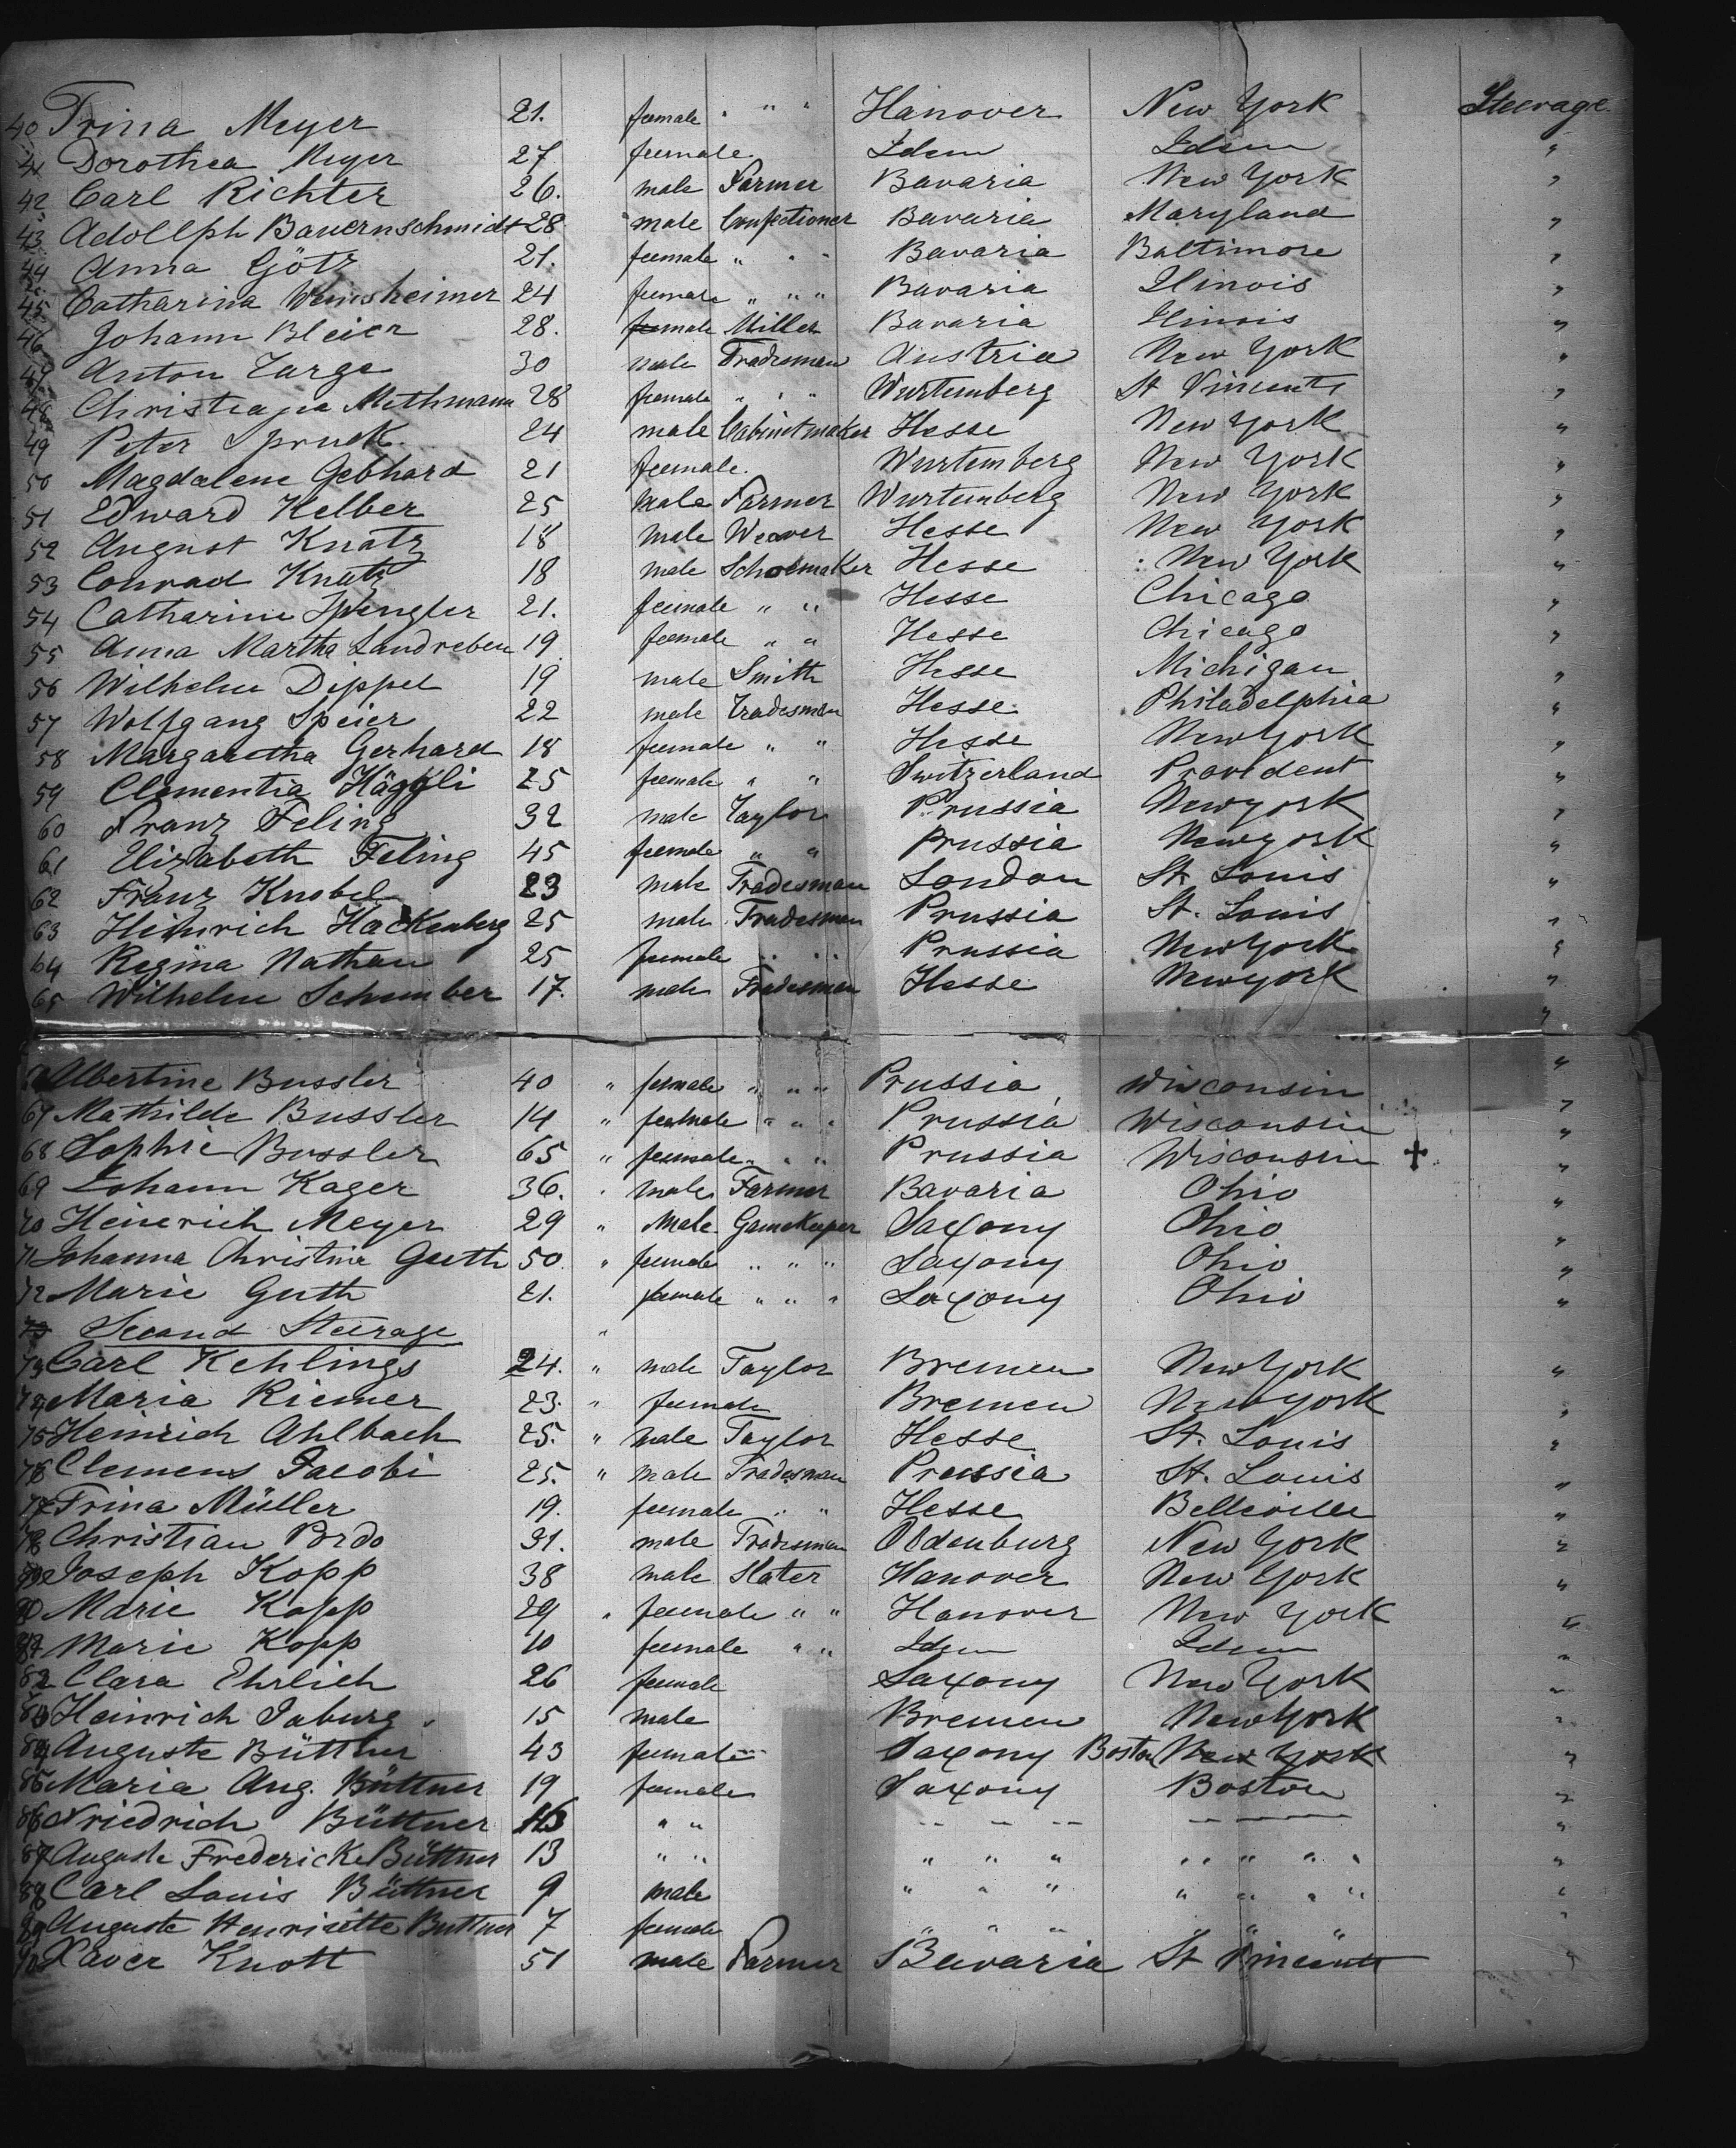 40 Trina Meyer 21. female " " " Hanover New York Steerage
41 Dorothea Meyer 27 female. Idem Idem "
42 Carl Richter 26. male Farmer Bavaria New York "
43 Adollph Bauernschmidt 28 male Confectioner Bavaria Maryland "
44 Anna Götz 21. female " " " Bavaria Baltimore "
45 Catharina 24 female " " " Bavaria Ilinois "
46 Johann Bleier 28. male Miller Bavaria Ilinois "
47 Anton 30 male Tradesman Austria New York "
48 Methmann 28 female " " " Wurtemberg St Vincents "
49 Peter Spruck. 24 male Cabinetmaker Hesse New York "
50 Magdalene Gebhard 21 female. Wurtemberg New York "
51 Edward Kelber 25 male Farmer Wurtemberg New York "
52 August Knatz 18 male Weaver Hesse New York "
53 Conrad Knatz 18 male Schoemaker Hesse New York "
54 Catharine Spengler 21. female " " Hesse Chicago "
55 Anna Martha Landreben 19 female " " Hesse Chicago "
56 Wilhelm Dippel 19 male Smith Hesse Michigan "
57 Wolfgang Speier 22 male Tradesman Hesse Philadelphia "
58 Margaretha Gerhard 18 female " " Hesse New York "
59 Clementia Häggli 25 female " " Switzerland Provident "
60 Franz Feling 32 male Taylor Prussia Newyork "
61 Elizabeth Feling 45 female " " Prussia Newyork "
62 Franz Knobel 23 male Tradesman London St. Louis "
63 Heinrich Hackenberg 25 male Tradesman Prussia St. Louis "
64 Regina Nathan 25 female " " Prussia New York "
65 Wilhelm Schember 17. male Tradesman Hesse Newyork "
Albertine Bussler 40 " female " " " Prussia Wisconsin "
67 Mathilde Bussler 14 " female " " " Prussia Wisconsin "
68 Sophie Bussler 65 " female " " " Prussia Wisconsin ✝ "
69 Johann Kager 36. " male Farmer Bavaria Ohio "
70 Heinerich Meyer 29 " Male Gamekeeper Saxony Ohio "
71 Johanna Christine Guth 50. " female " " " Saxony Ohio "
72 Marie Guth 21. female " " " Saxony Ohio "
Second Steerage "
73 Carl Kehlings 24. " male Taylor Bremen New York "
74 Maria Riemer 23. " female Bremen New York "
75 Heinrich Ahlbach 25. " male Taylor Hesse St. Louis "
76 Clemens Jacobi 25. " male Tradesman Prussia St. Louis "
77 Trina Müller 19. female " " Hesse Belleville "
78 Christian Pordo 31. male Tradesman Oldenburg New York "
79 Joseph Kopp 38 male Slater Hanover New York "
80 Marie Kopp 29 " female " " Hanover New York "
81 Marie Kopp 10 female " " Idem Idem "
82 Clara Ehrlich 26 female Saxony New York "
83 Heinrich Jaburg 15 male Bremen New York "
84 Auguste Büttner 43 female Saxony Boston New York "
85 Maria Aug. Büttner 19 female Saxony Boston "
86 Friedrich Büttner " " "
87 Auguste Fredericke Büttner 13 " " " " " " " " " "
88 Carl Louis Büttner 9 male " " " " " " " "
89 Auguste Henriette Buttner 7 female " " " " " "
90 Xaver Knott 51 male Farmer Bavaria St Vincents "